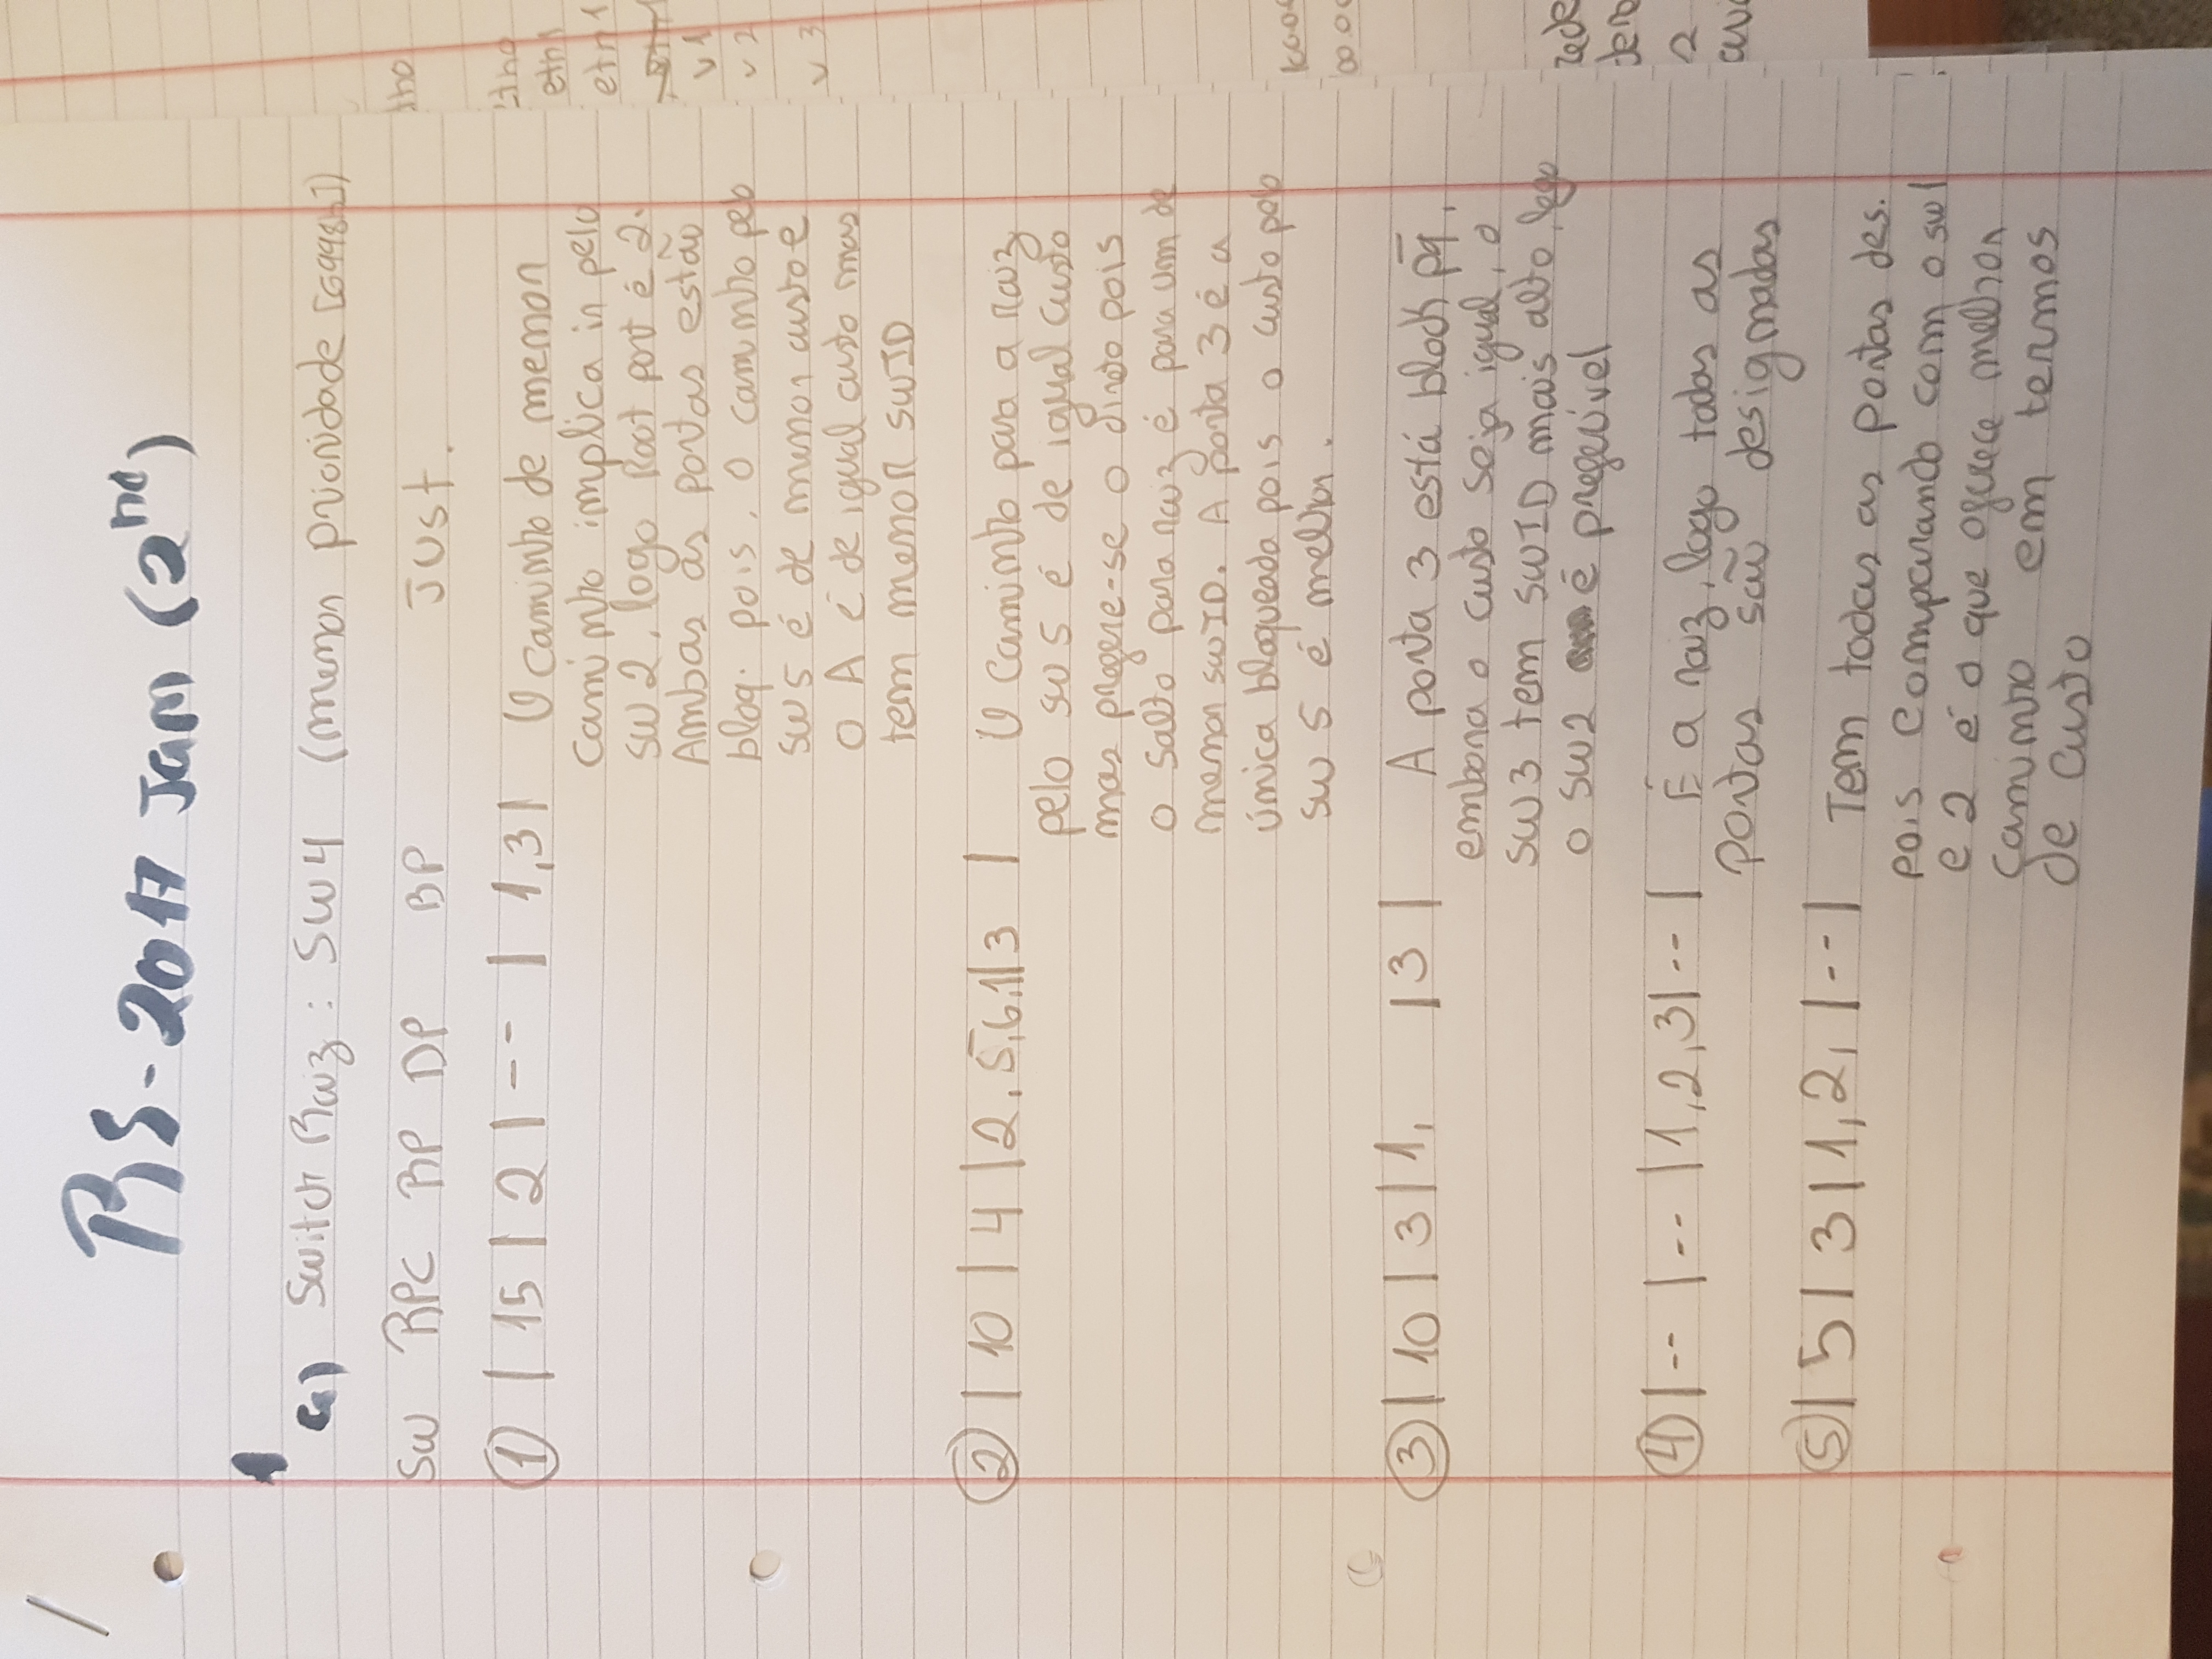 RS-2017 Jan (2nd)
1
a) Switch Raiz: SW4 (menor prioridade
SW RPC RP DP BP Just.
① | 15 | 2 | -- | 1,3 | O caminho de menor
caminho implica ir pelo
SW2, logo Root port é 2.
Ambas as portas estão
bloq. pois, o caminho pelo
SW5 é de menor custo e
o A é de igual custo mas
tem menor SWID
② | 10 | 4 | 2, 5, 6, 1 | 3 | O caminho para a raiz
pelo SW5 é de igual custo
mas prefere-se o direto pois
o salto para raiz é para um de
menor SWID. A porta 3 é a
única bloqueada pois o custo pelo
SW5 é melhor.
③ | 10 | 3 | 1, | 3 | A porta 3 está block pq,
embora o custo seja igual, o
SW3 tem SWID mais alto, logo
o SW2 é preferível
④ | -- | -- | 1, 2, 3 | -- | É a raiz, logo todas as
portas são designadas
⑤ | 5 | 3 | 1, 2, | -- | Tem todas as portas des.
pois comparando com o sw1
e 2 é o que oferece melhor
caminho em termos
de custo
etn1
v1
v2
v3
2